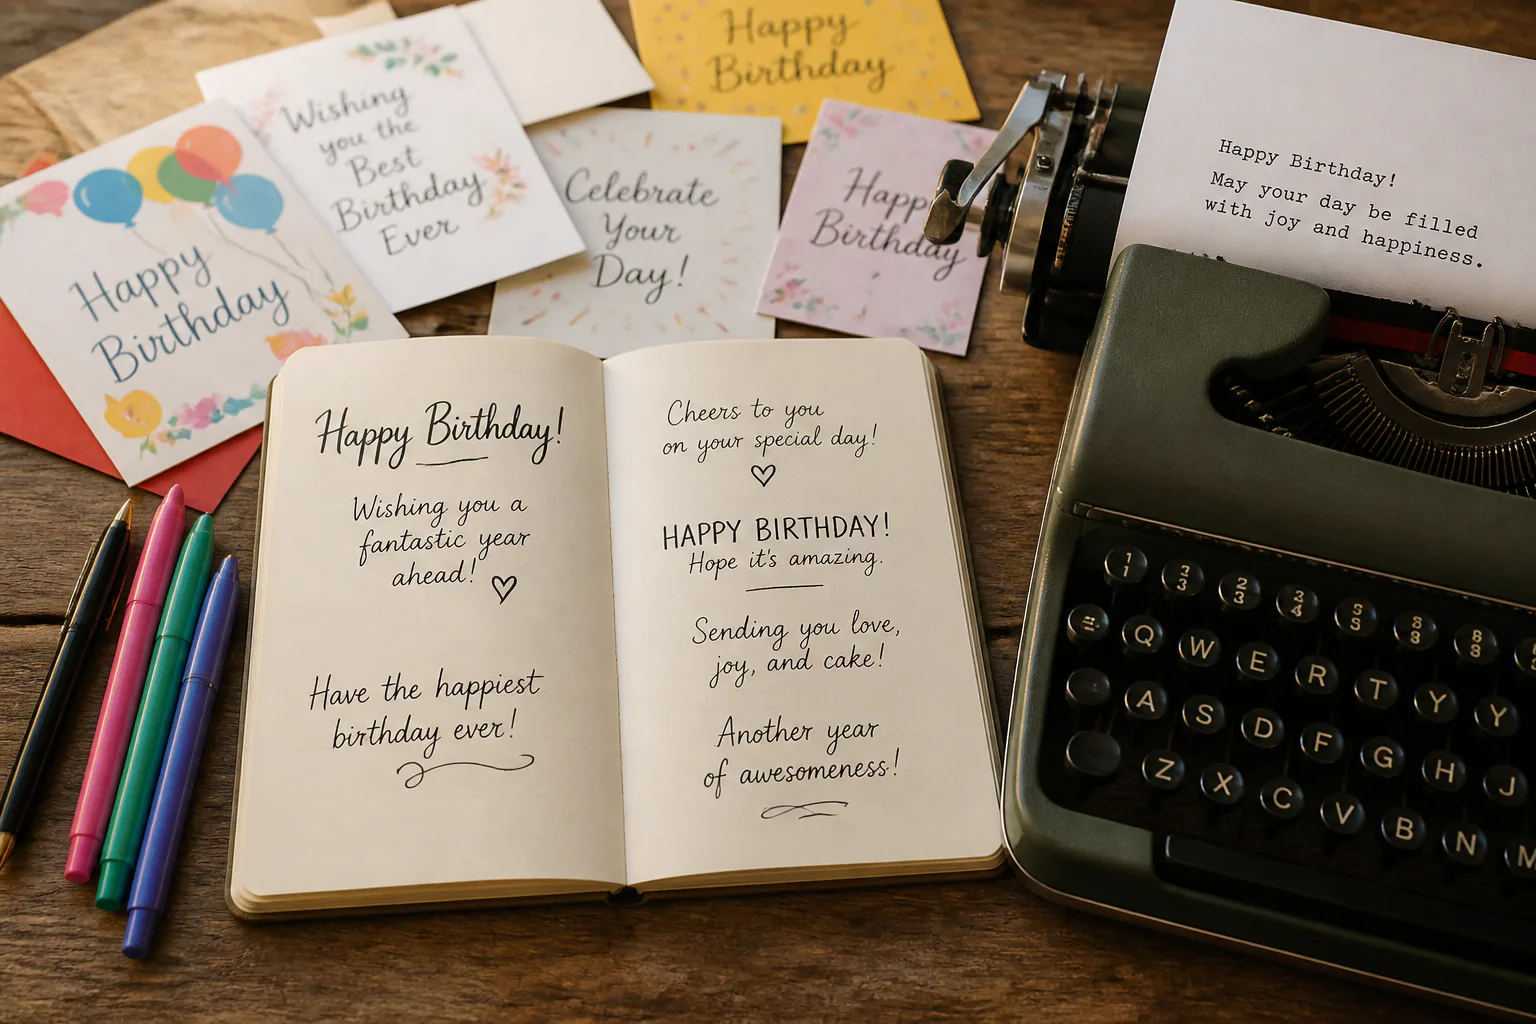 Happy
Birthday
Wishing
you the
Best
Birthday
Ever
Celebrate
Your
Day!
Happy
Birthday
Happy
Birthday
Happy Birthday!
May your day be filled
with joy and happiness.
Happy Birthday!
Wishing you a
fantastic year
ahead!
Have the happiest
birthday ever!
Cheers to you
on your special day!
HAPPY BIRTHDAY!
Hope it's amazing.
Sending you love,
joy, and cake!
Another year
of awesomeness!
1 1
3 3
2 3
3 4
S S
8 8
8 8
Q W E R T Y Y
A S D F G H J
Z X C V B N M